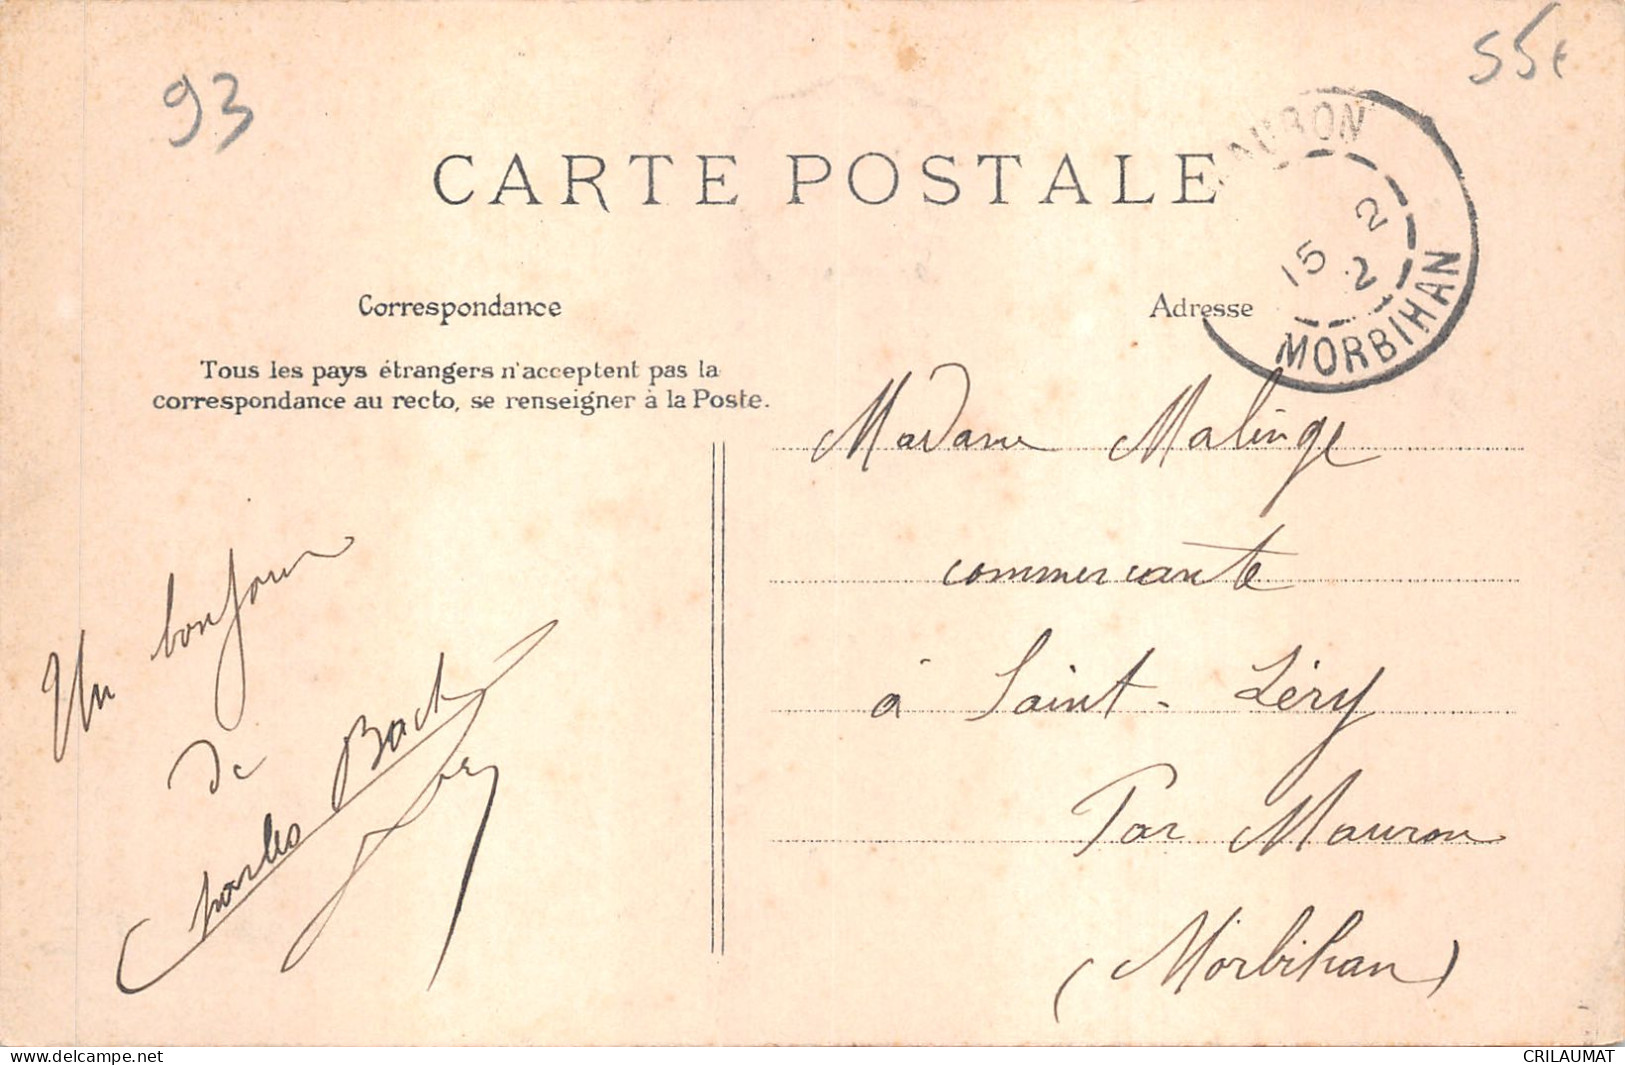 93
55€
CARTE POSTALE
MORBIHAN
15 2
2
Correspondance
Adresse
Tous les pays étrangers n'acceptent pas la
correspondance au recto, se renseigner à la Poste.
Madame Malinge
commercante
à Saint-Léry
Par Mauron
(Morbihan)
Un bonjour
de
Charles
CRILAUMAT